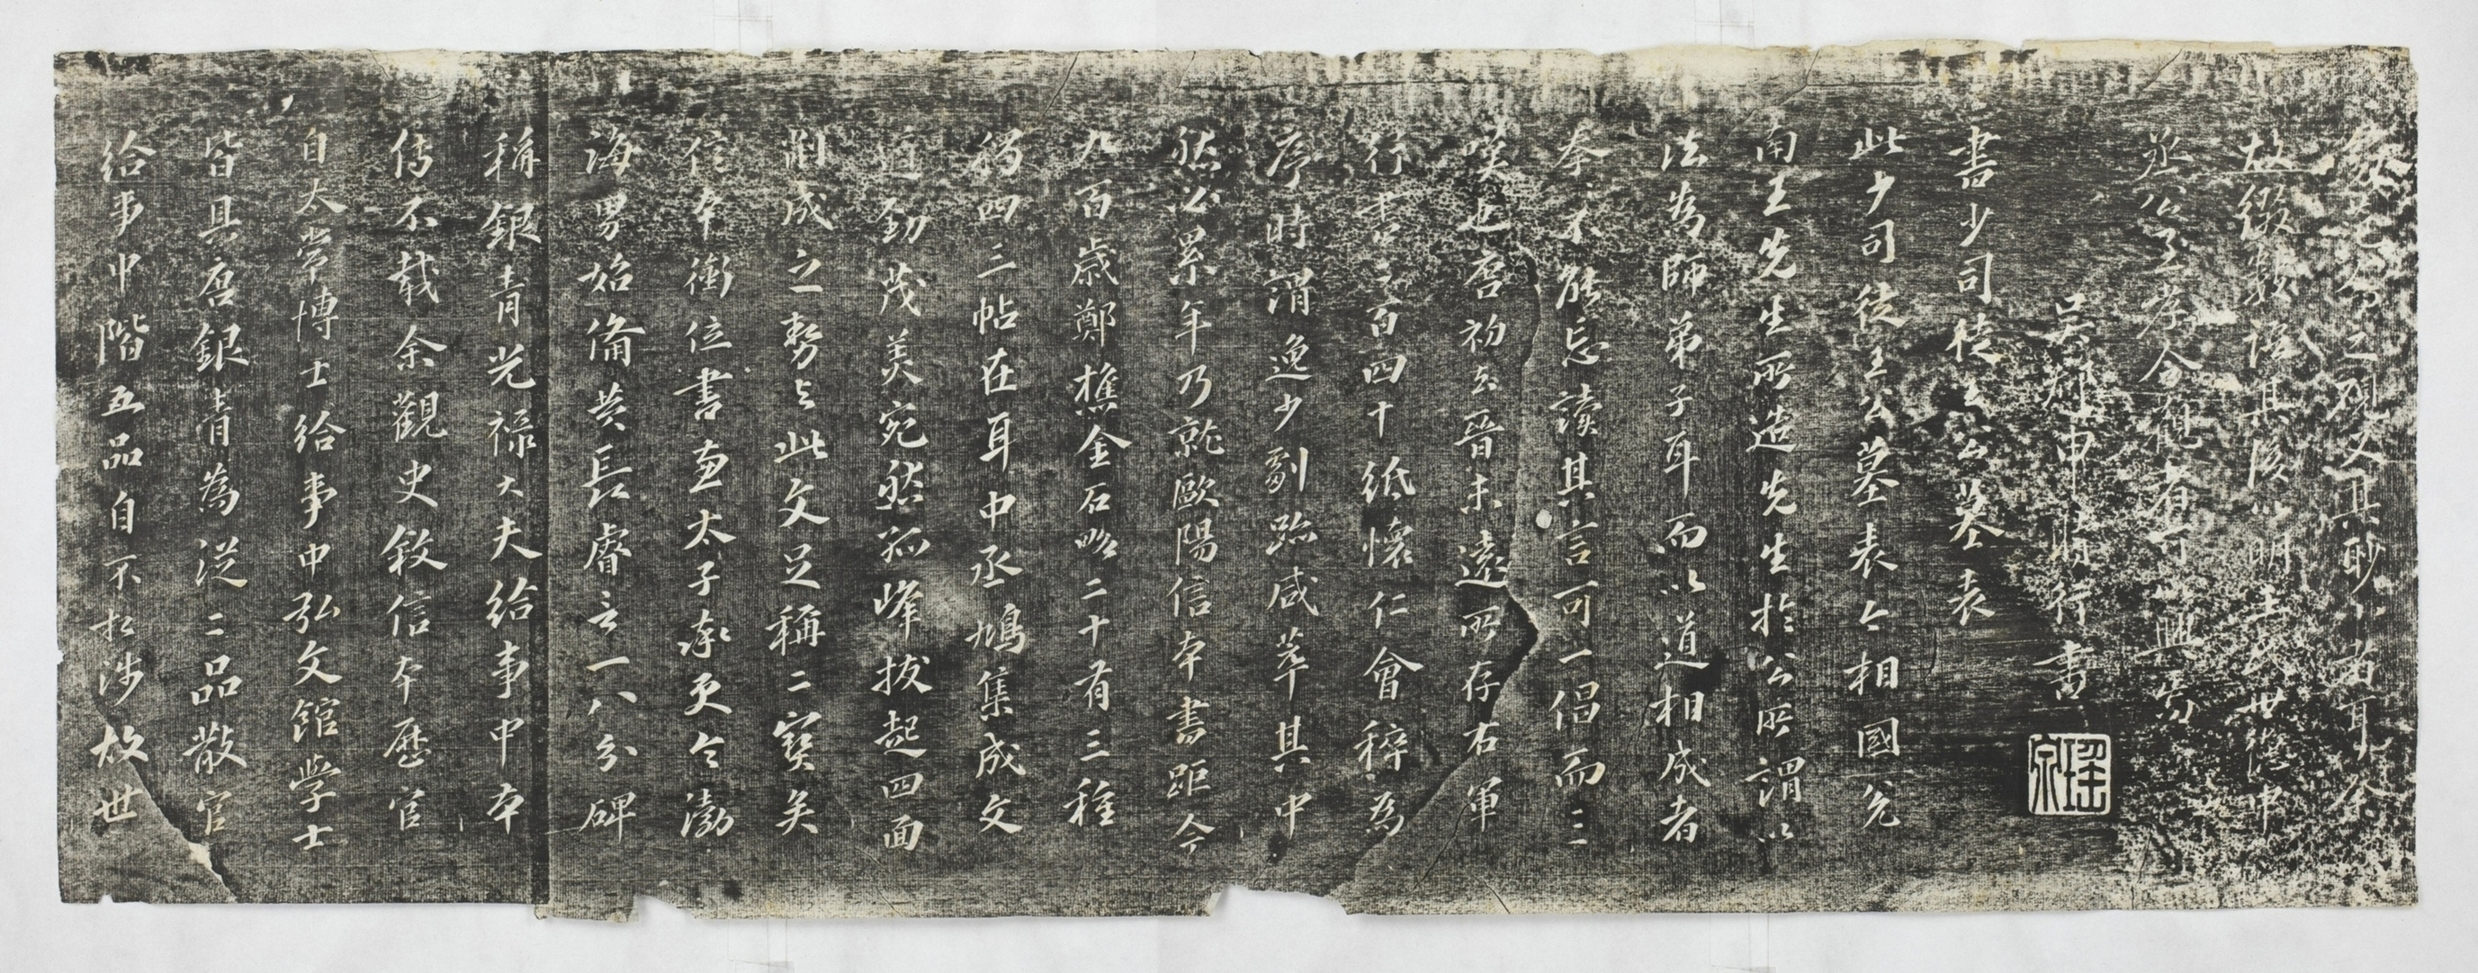 故綴數語其後以明
吳郡申時行書
瑤泉
書少司徒王公墓表
此少司徒王公墓表今相國兗
南王先生所造先生於公所謂以
法為師弟子耳而以道相成者
奉不能忘讀其言可一倡而三
嘆也唐初去晉未遠所存右軍
行書二百四十紙懷仁會稡為
序時謂逸少劇跡咸萃其中
然必累年乃就歐陽信本書距今
九百歲鄭樵金石略二十有三種
得四三帖在耳中丞鳩集成文
遒勁茂美宛然孤峰拔起四面
削成之勢與此文足稱二寶矣
信本銜位書曰太子率更令渤
海男始備其長睿言一八分碑
稱銀青光祿大夫給事中本
傳不載余觀史敘信本歷官
自太常博士給事中弘文館學士
皆具唐銀青為從二品散官
給事中階五品自不相涉故世